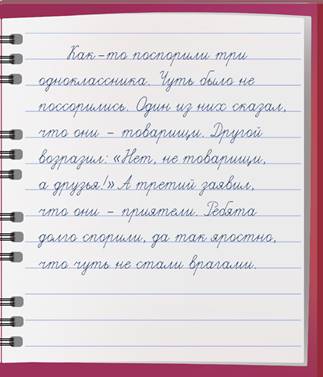 Как-то поспорили три
одноклассника. Чуть было не
поссорились. Один из них сказал,
что они – товарищи. Другой
возразил: «Нет, не товарищи,
а друзья!» А третий заявил,
что они – приятели. Ребята
долго спорили, да так яростно,
что чуть не стали врагами.